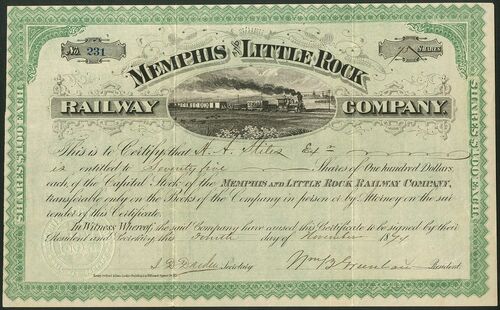 No. 231
75 SHARES
MEMPHIS AND LITTLE ROCK
RAILWAY COMPANY.
SHARES $100 EACH
SHARES $100 EACH
This is to Certify that
is entitled to Seventy five Shares of One hundred Dollars
each, of the Capital Stock of the MEMPHIS AND LITTLE ROCK RAILWAY COMPANY,
transferable only on the Books of the Company in person or by Attorney on the sur-
render of this Certificate.
In Witness Whereof, the said Company have caused this Certificate to be signed by their
President and Secretary this day of November 187
Secretary President